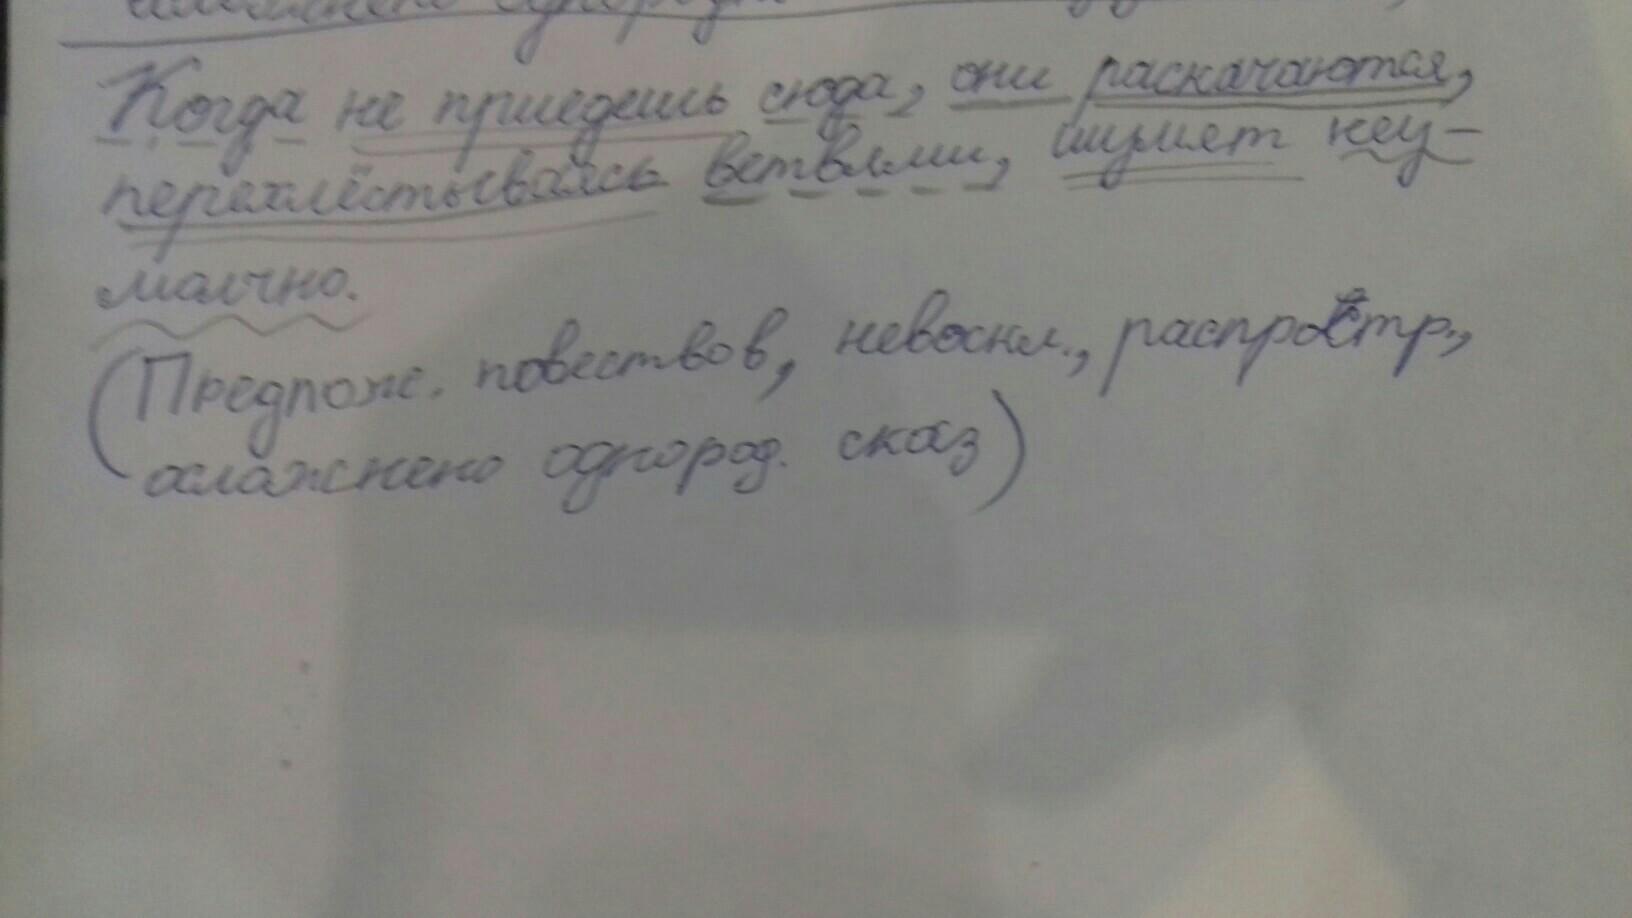 Когда не приедешь сюда, они раскачаются,
перехлёстываясь ветвями, шумят неу-
малчно.
(Предлож. повествов, невоскл., распростр.,
аслажнено однород. сказ)